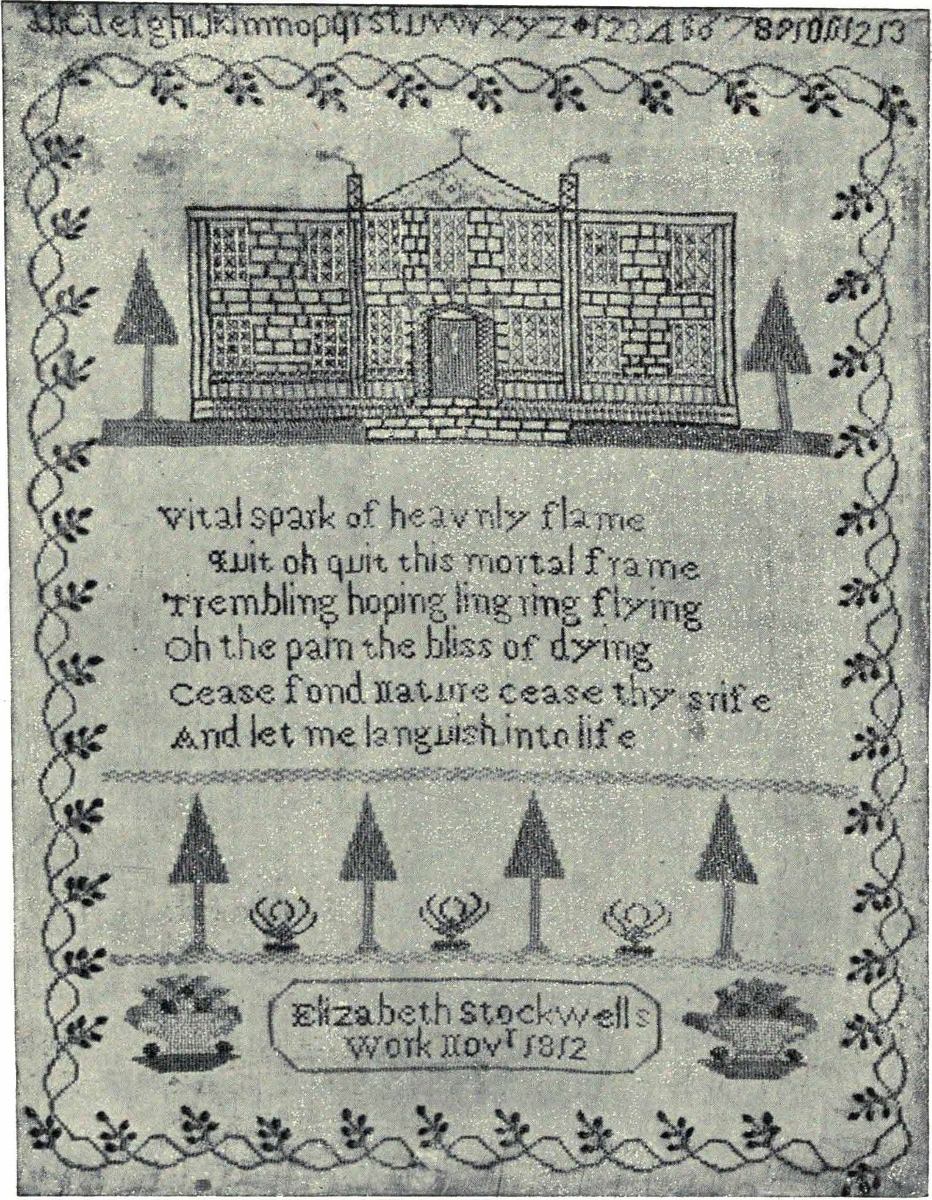 abcdefghijklmnopqrstuvwxyz 12345678910111213
vital spark of heavnly flame
quit oh quit this mortal frame
Trembling hoping lingring flying
Oh the pain the bliss of dying
Cease fond Nature cease thy srife
And let me languish into life
Elizabeth Stockwells
Work Novr 1812